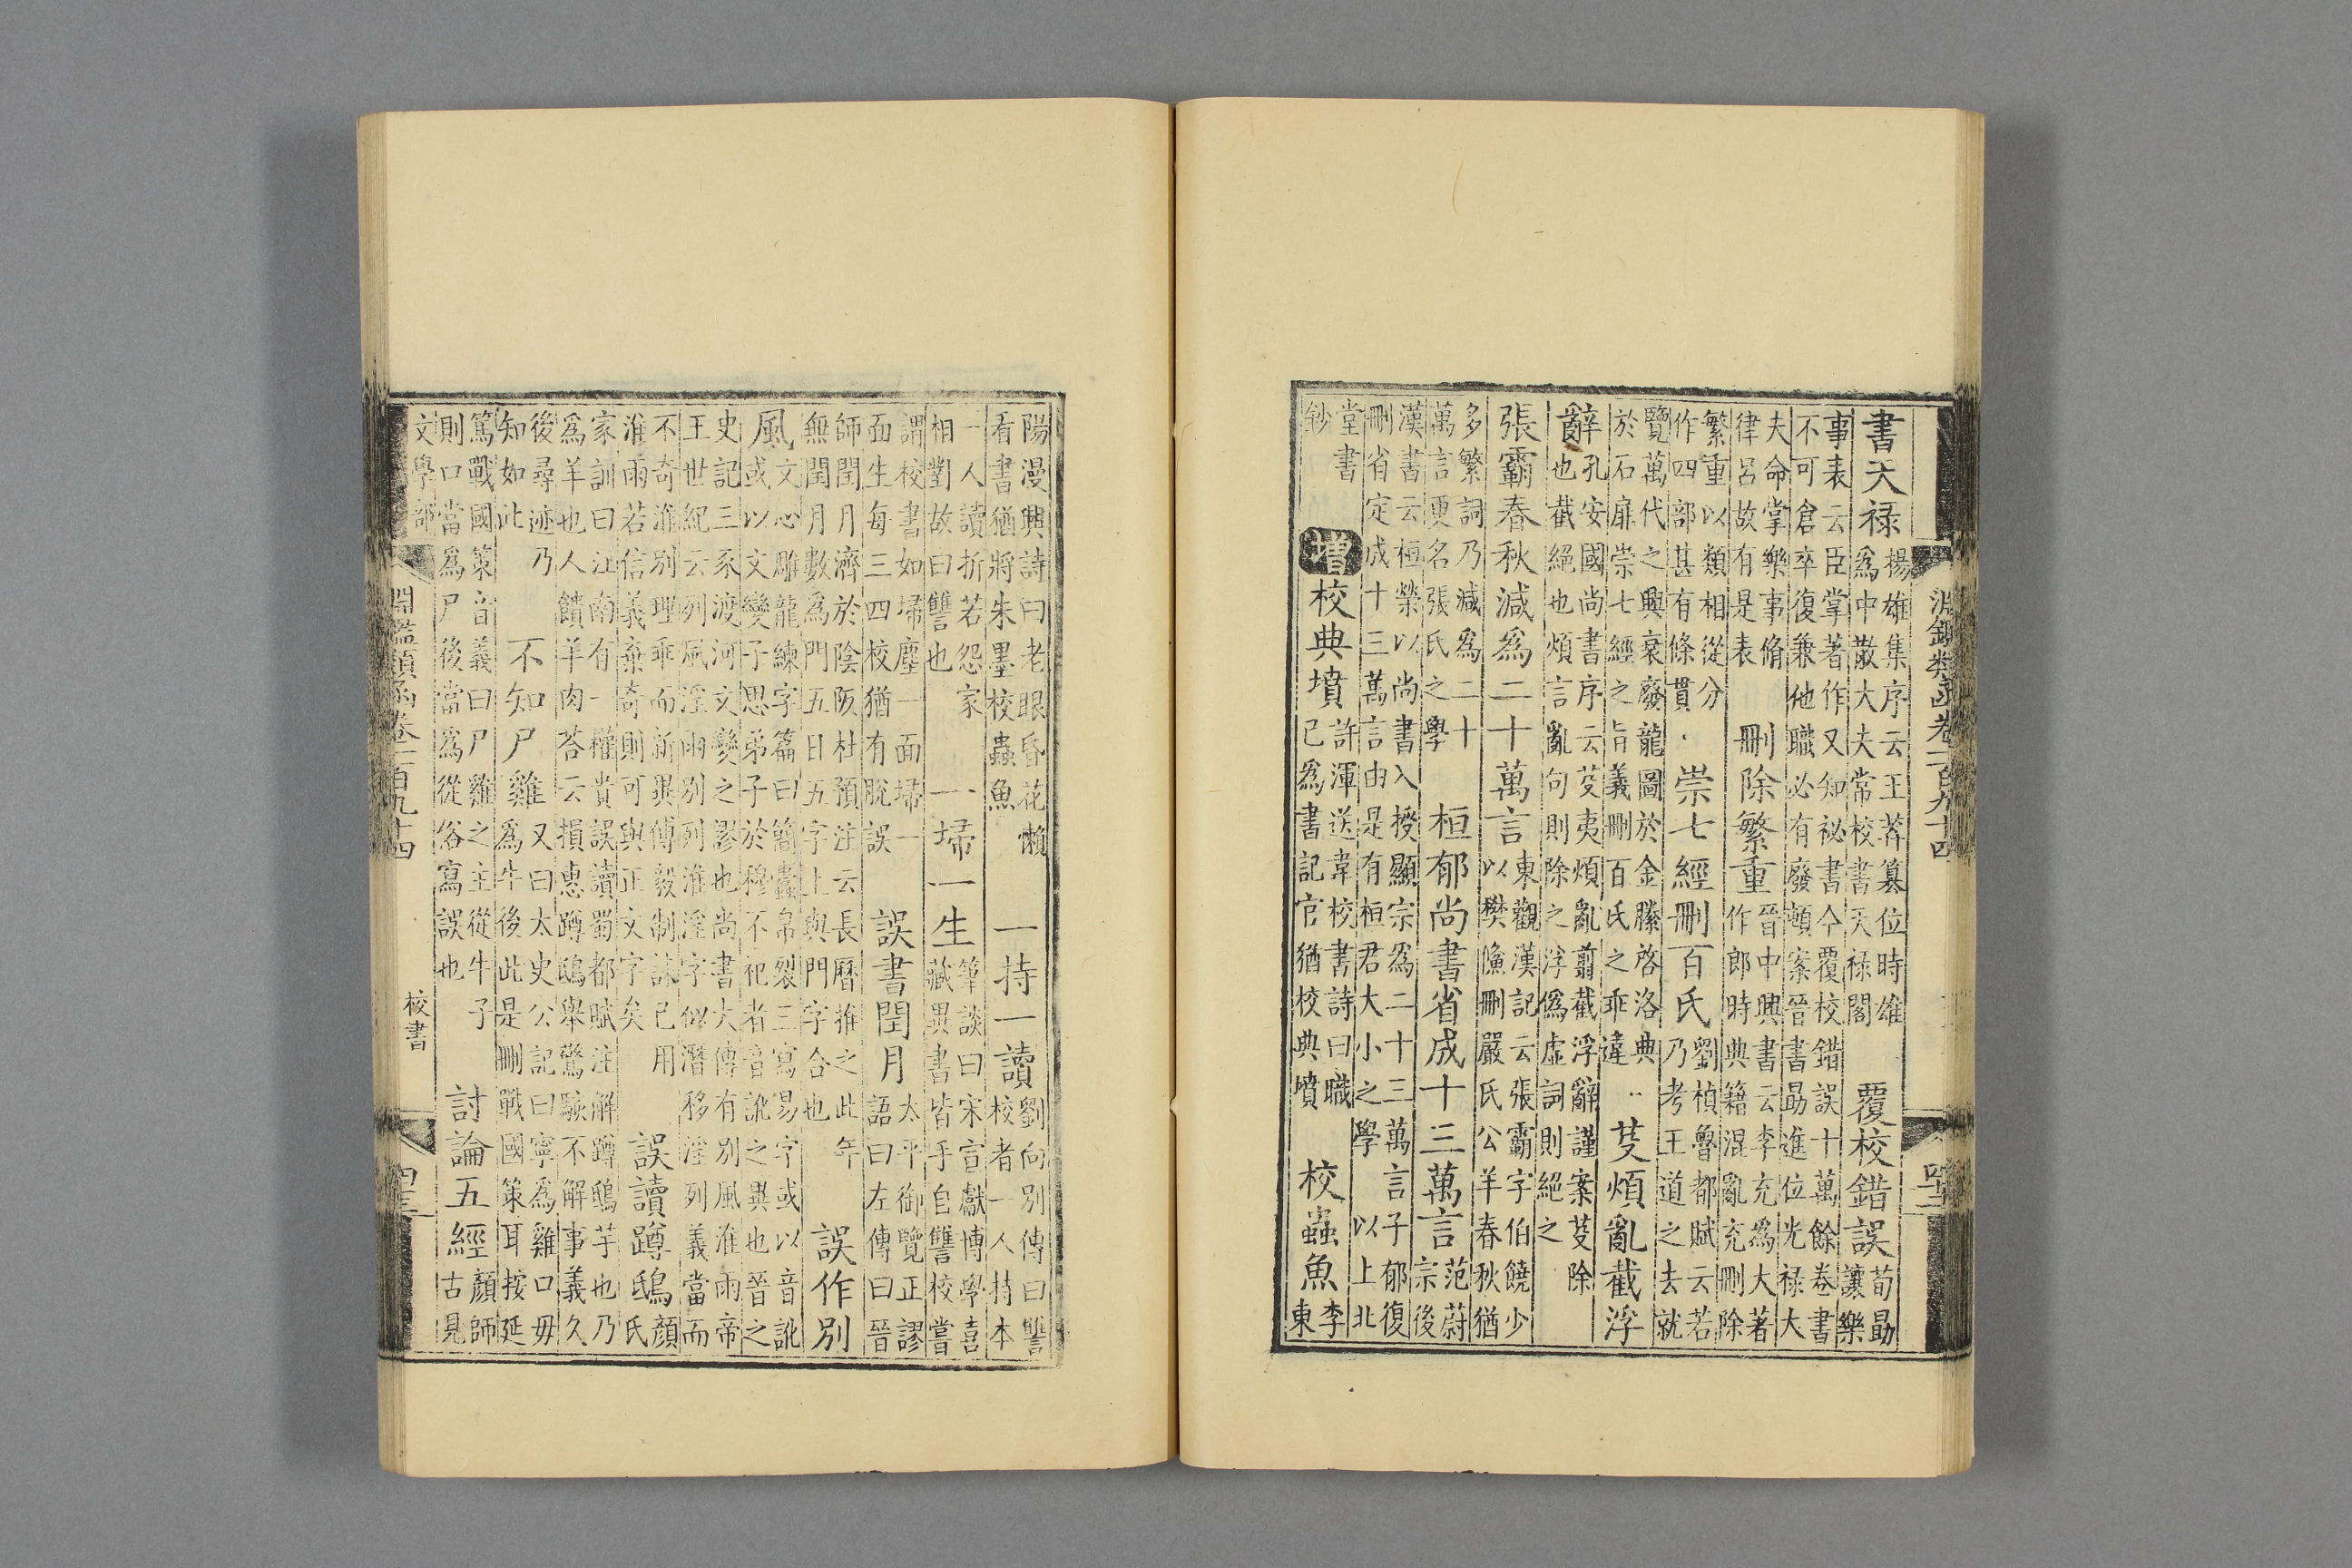 淵鑑類函卷一百九十四
書天祿
楊雄集序云王莽篡位時雄
爲中散大夫常校書天祿閣
覆校錯誤
荀勗
讓樂
事表云臣掌著作又知祕書今覆校錯誤十萬餘卷書
不可倉卒復兼他職必有廢頓案晉書勗進位光祿大
夫命掌樂事脩
律呂故有是表
刪除繁重
晉中興書云李充爲大著
作郎時典籍混亂充刪除
繁重以類相從分
作四部甚有條貫
崇七經刪百氏
劉楨魯都賦云若
乃考王道之去就
覽萬代之興衰廢龍圖於金縢啓洛典
於石扉崇七經之旨義刪百氏之乖違
芟煩亂截浮
辭
孔安國尚書序云芟夷煩亂翦截浮辭謹案芟除
也截絕也煩言亂句則除之浮僞虛詞則絕之
張霸春秋減爲二十萬言
東觀漢記云張霸字伯饒少
以樊鯈刪嚴氏公羊春秋猶
多繁詞乃減爲二十
萬言更名張氏之學
桓郁尚書省成十三萬言
范蔚
宗後
漢書云桓榮以尚書入授顯宗爲二十三萬言子郁復
刪省定成十三萬言由是有桓君大小之學 以上北
堂書
鈔
增
校典墳
許渾送韋校書詩曰職
已爲書記官猶校典墳
校蟲魚
李
東
陽漫興詩曰老眼昏花懶
看書猶將朱墨校蟲魚
一持一讀
劉向別傳曰讐
校者一人持本
一人讀折若怨家
相對故曰讐也
一埽一生
筆談曰宋宣獻博學喜
藏異書皆手自讐校嘗
謂校書如埽塵一面埽一
面生每三四校猶有脫誤
誤書閏月
太平御覽正謬
語曰左傳曰晉
師閏月濟於陰阪杜預注云長曆推之此年
無閏月數爲門五日五字上與門字合也
誤作別
風
文心雕龍練字篇曰簡蠹帛裂三寫易字或以音訛
或以文變子思弟子於穆不祀者音訛之異也晉之
史記三豕渡河文變之謬也尚書大傳有別風淮雨帝
王世紀云列風淫雨別列淮淫字似潛移淫列義當而
不奇淮別理乖而新異傅毅制誄已用
淮雨若信義棄奇則可與正文字矣
誤讀蹲鴟
顏
氏
家訓曰江南有一權貴誤讀蜀都賦注解蹲鴟芋也乃
爲羊也人饋羊肉荅云損惠蹲鴟舉驚駭不解事義久
後尋迹乃
知如此
不知尸雞
又曰太史公記曰寧爲雞口毋
爲牛後此是刪戰國策耳按延
篤戰國策音義曰尸雞之主從牛子
則口當爲尸後當爲從俗寫誤也
討論五經
顏師
古見
文學部
淵鑑類函卷一百九十四
校書